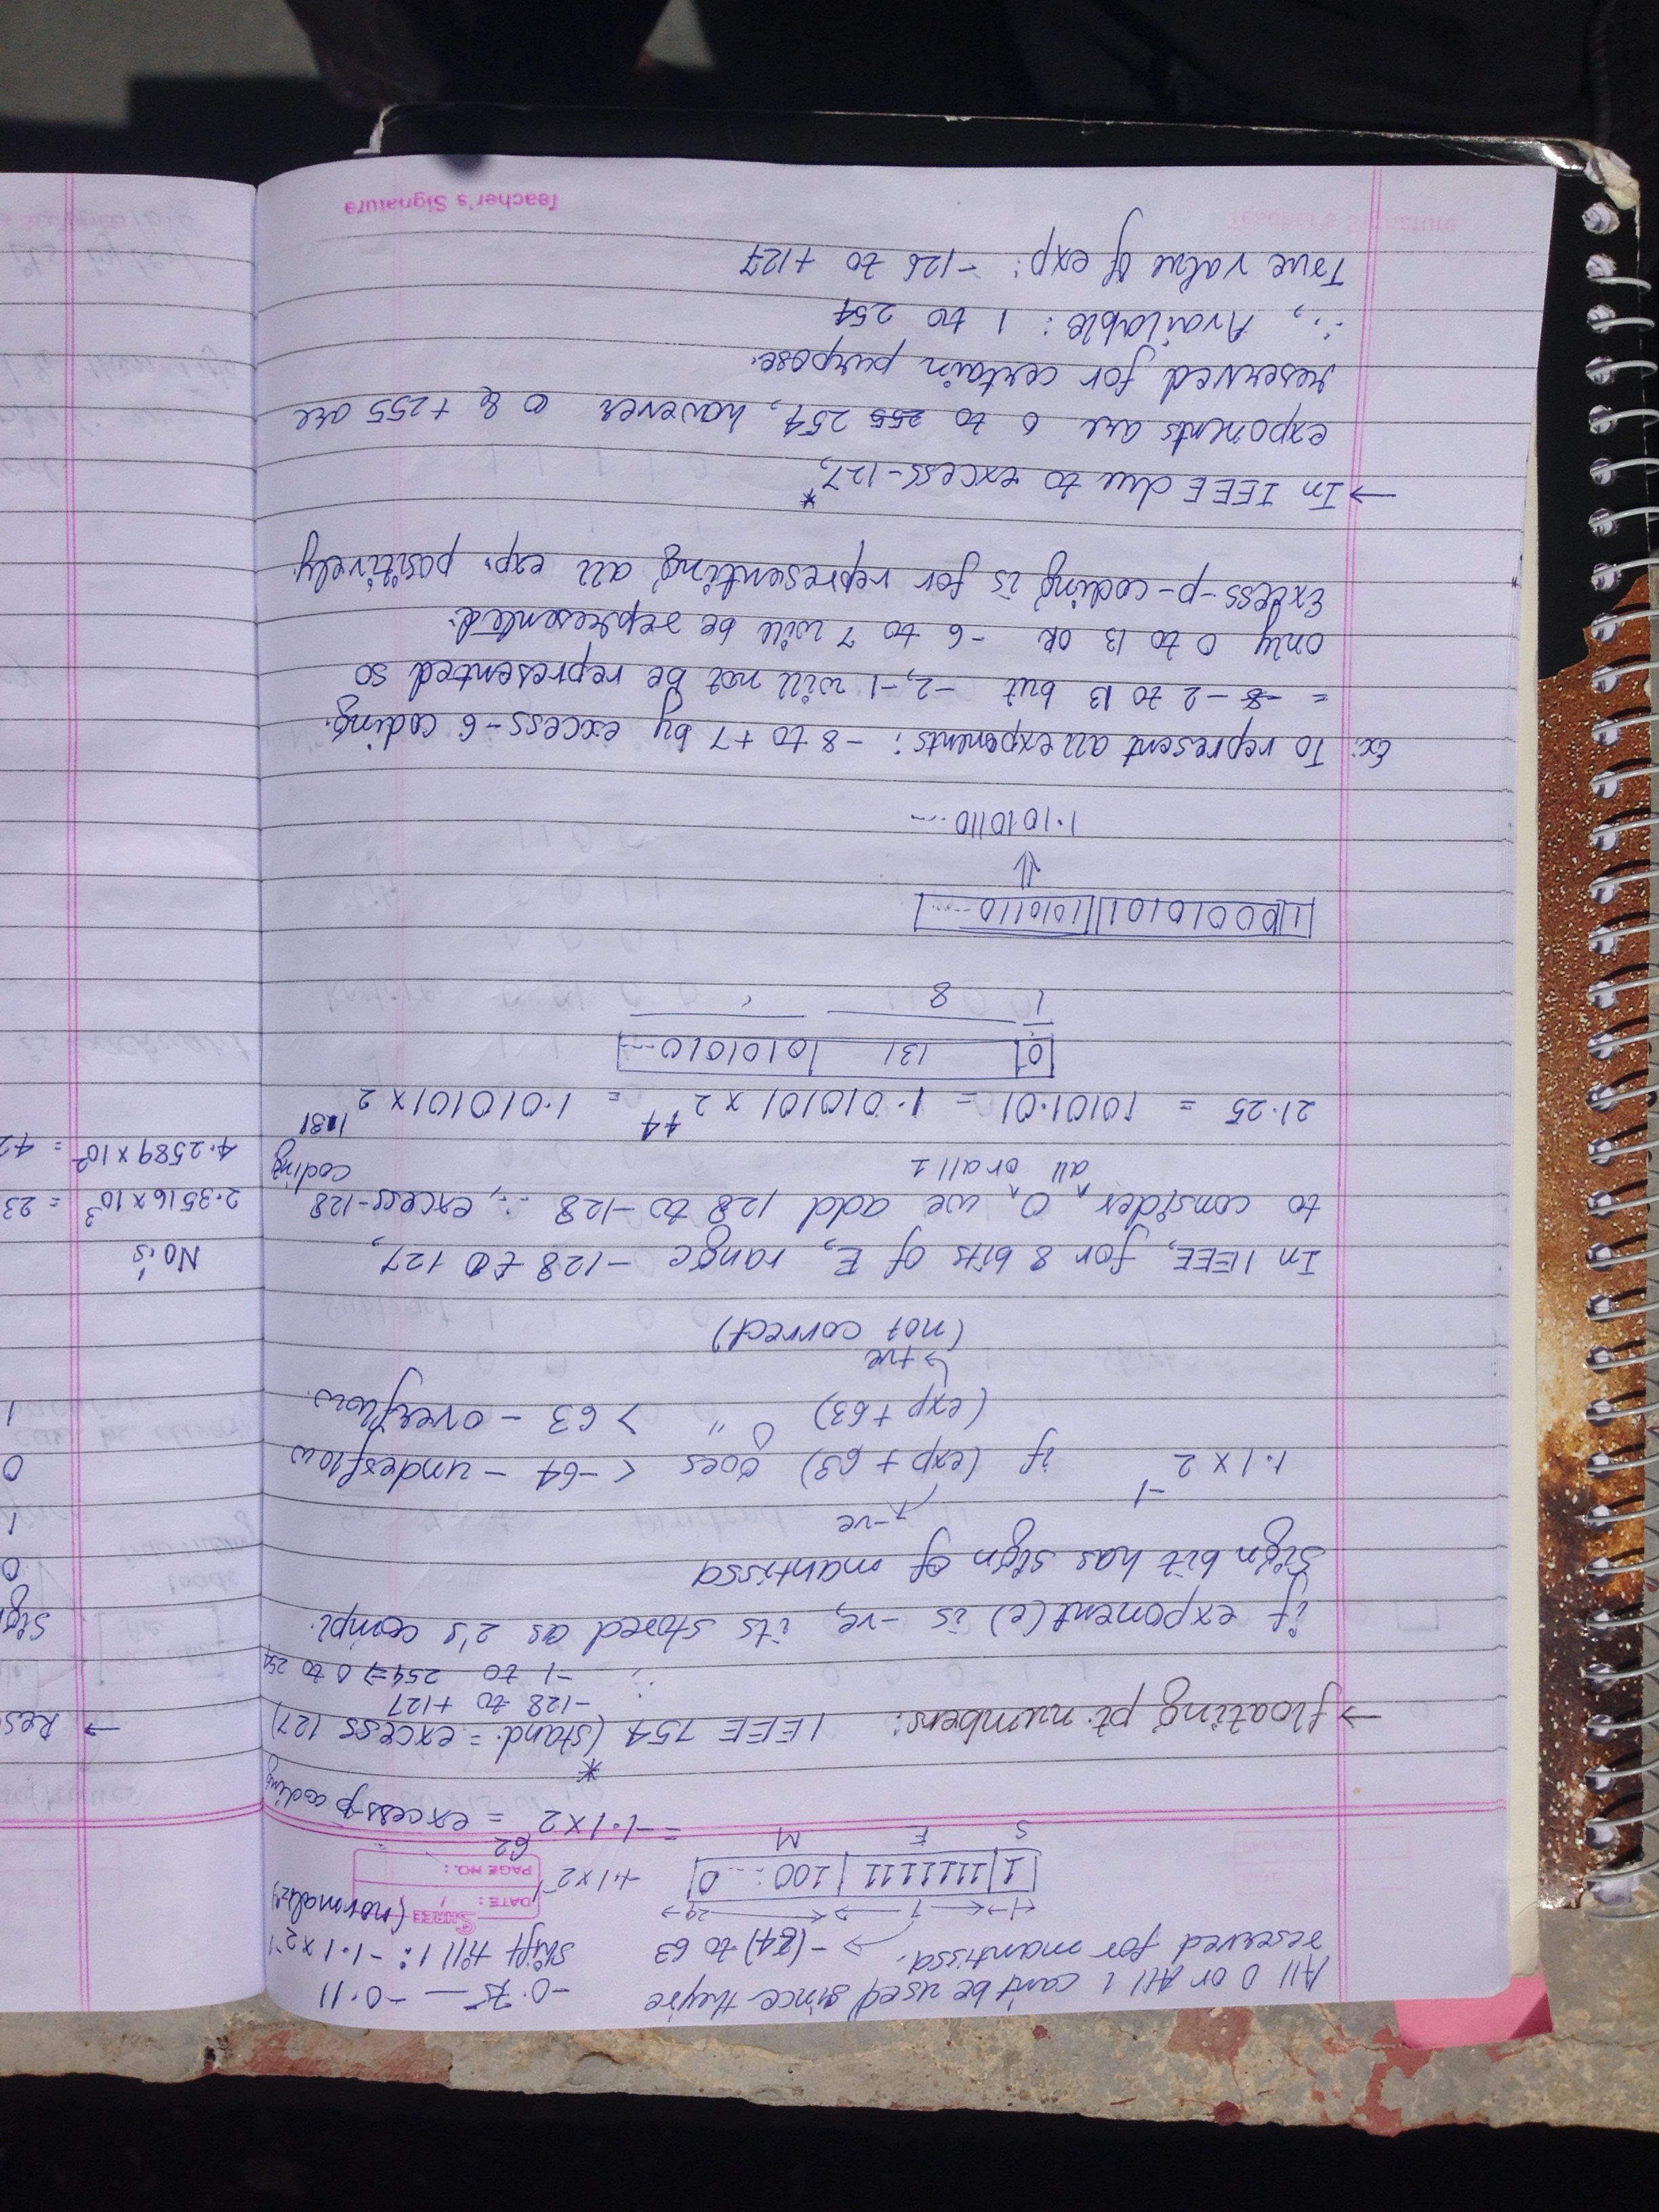 All 0 or All 1 can't be used since they're
reserved for mantissa.
-(64) to 63
-0.75 — -0.11
Shift till 1: -1.1 x 2^-1
(normaliz^n)
SHREE
DATE:
PAGE NO.:
1 7 24
1 1111111 100...0
S E M
-1.1 x 2^-1
= -1.1 x 2^62 = excess-p coding
→ floating pt. numbers: IEEE 754 *(stand. = excess 127)
-128 to +127
∴ -1 to 254 => 0 to 254
if exponent (e) is -ve, its stored as 2's compl.
Sign bit has sign of mantissa
-ve
1.1 x 2^-1 if (exp + 63) goes < -64 - underflow
(exp + 63) " > 63 - overflow.
↳ +ve
(not correct)
In IEEE, for 8 bits of E, range -128 to 127,
to consider all 0 or all 1, we add 128 to -128 ∴, excess-128 coding
21.25 = 10101.01 = 1.010101 x 2^+4 = 1.010101 x 2^131
0 131 0101010...
1 8
1 00010101 1010110.....
⇓
1.1010110...
Ex: To represent all exponents: -8 to +7 by excess-6 coding.
= -8 -2 to 13 but -2, -1 will not be represented so
only 0 to 13 OR -6 to 7 will be represented.
Excess-p-coding is for representing all exp. positively.
→ In IEEE due to excess-127,*
exponents are 0 to 255 254, however 0 & +255 are
reserved for certain purpose.
∴, Available: 1 to 254
True value of exp: -126 to +127
Teacher's Signature
→ Res
Sig
0
1
0
1
No.'s
2.3516 x 10^3 = 23
4.2589 x 10^2 = 42